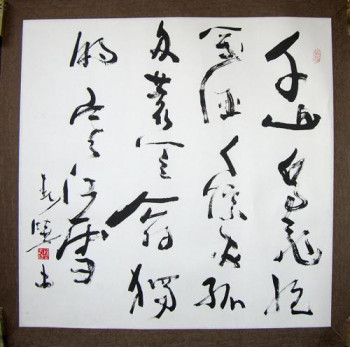 千山鳥飛絕
萬徑人踪灭孤
舟蓑笠翁獨
釣寒江雪